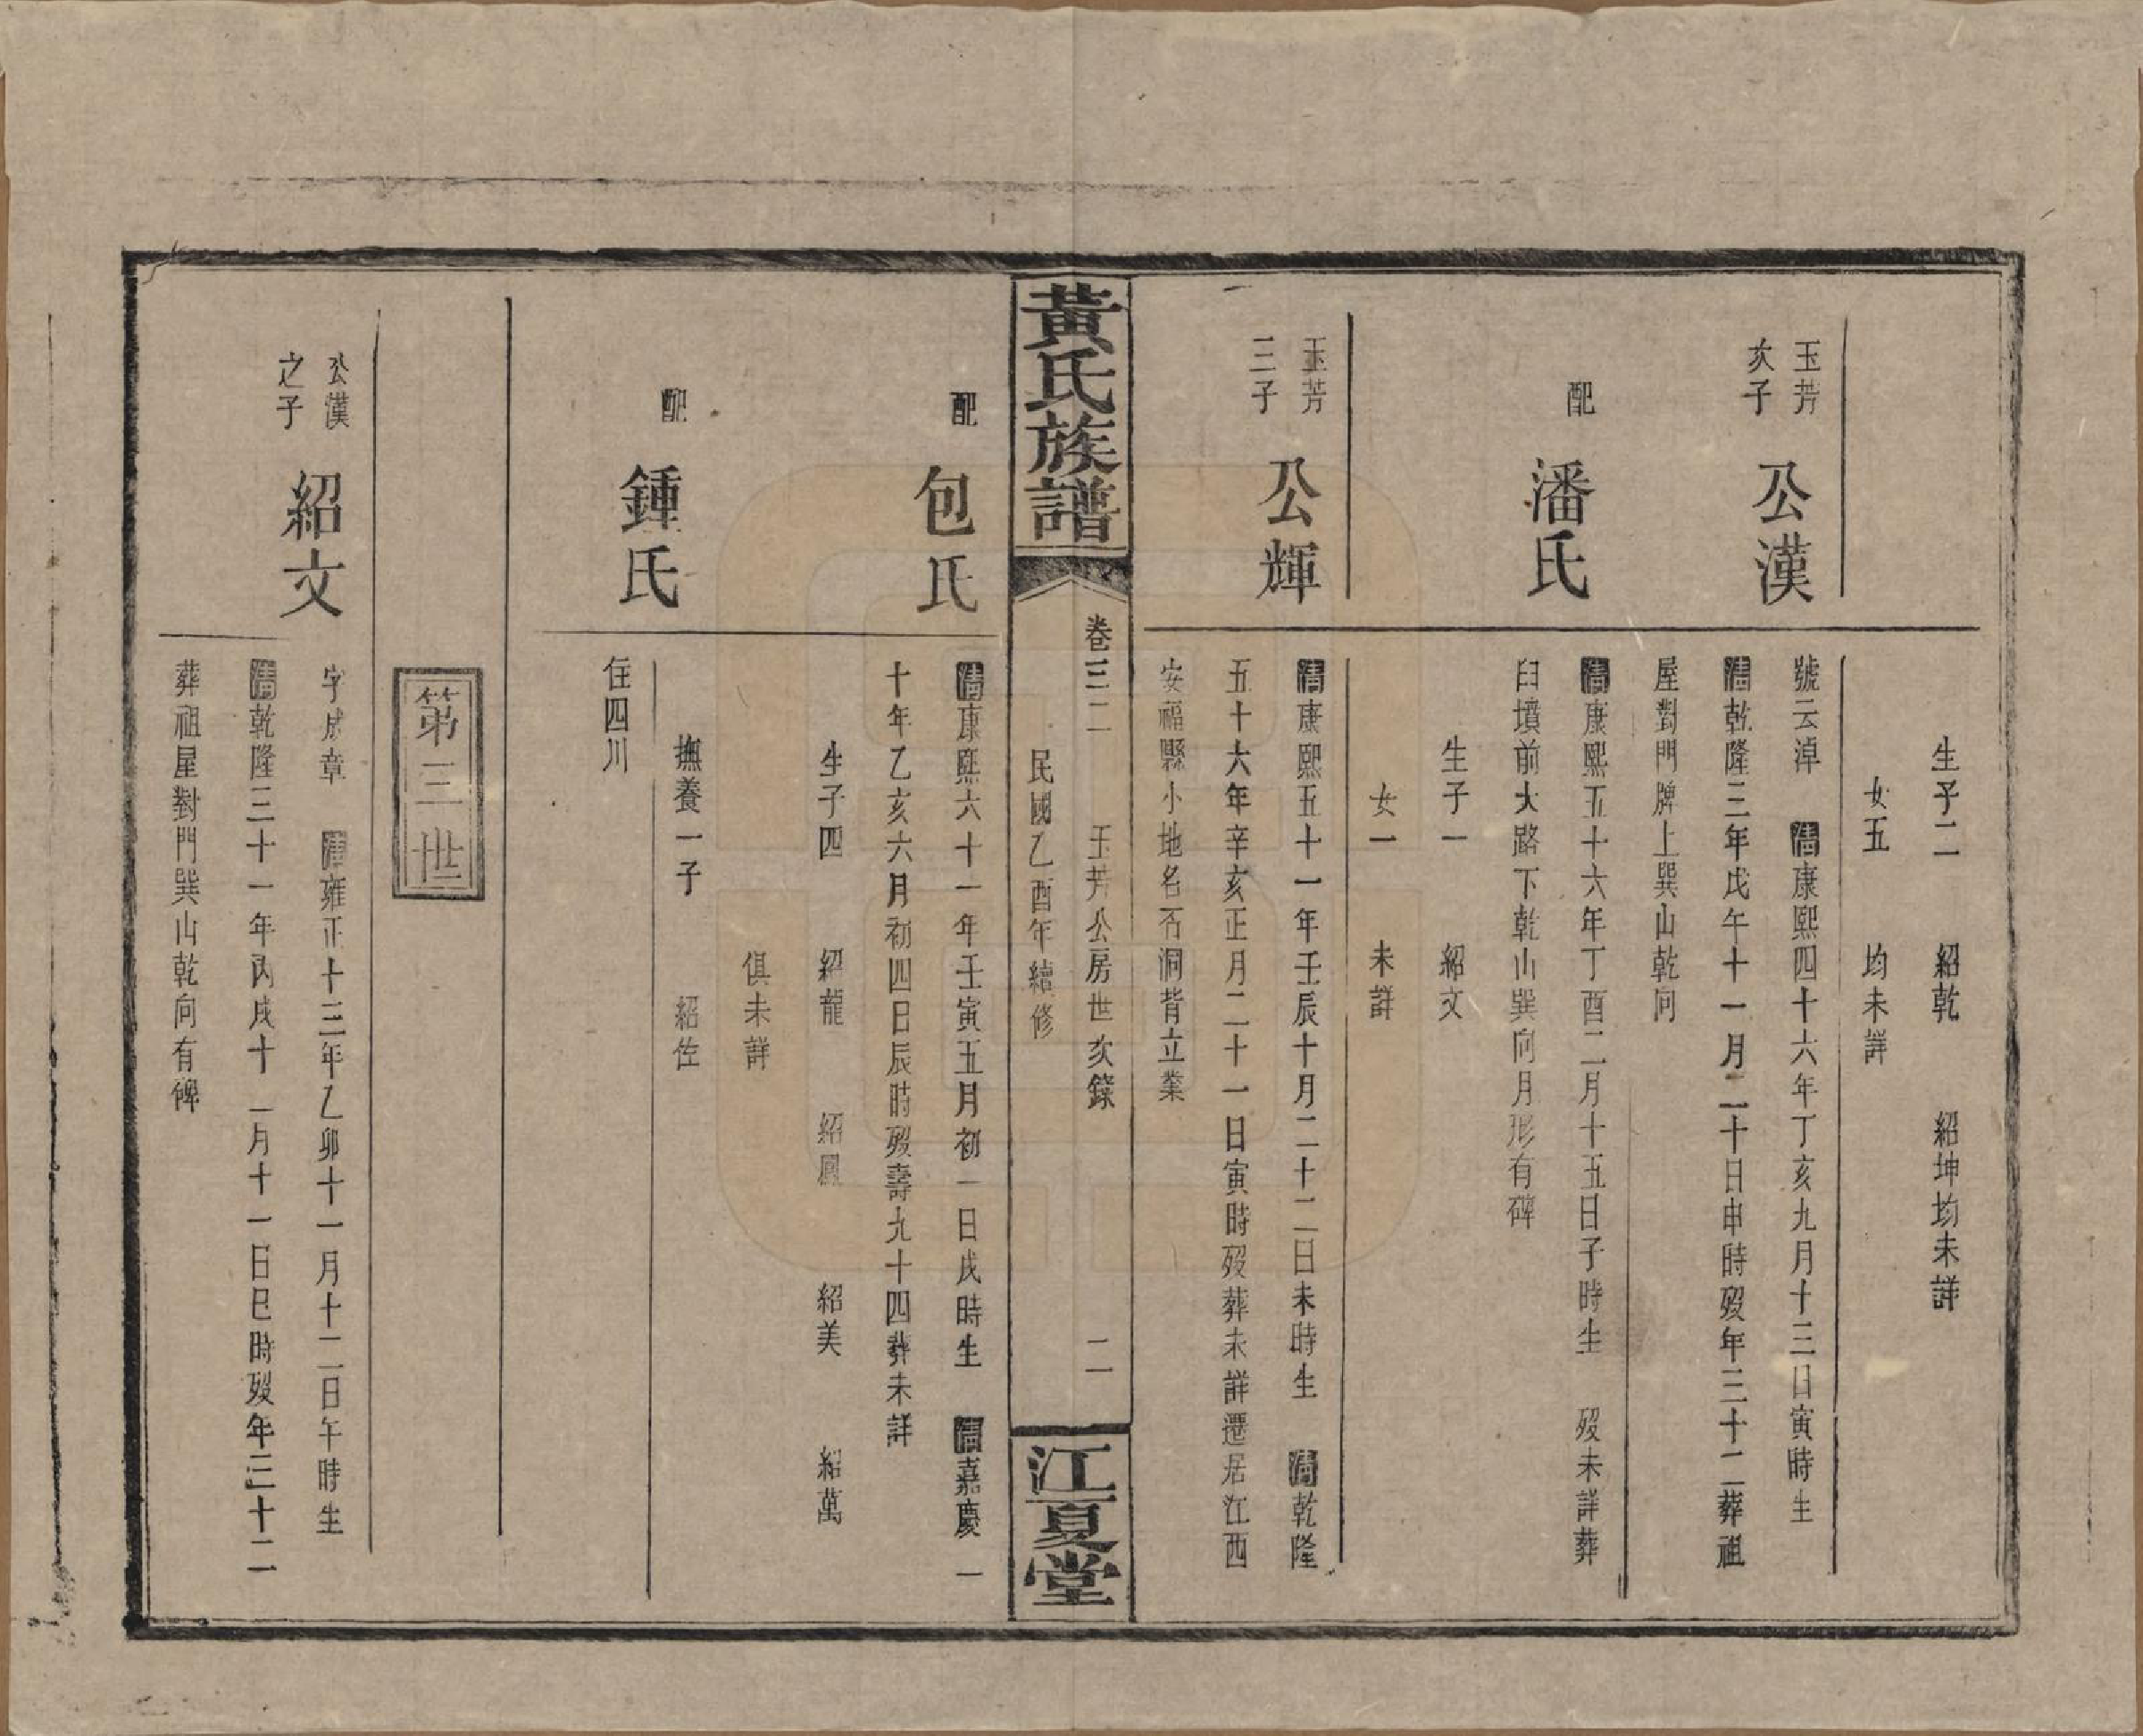 生子二　紹乾　紹坤均未詳
女五　均未詳
玉芳
次子
公漢
號云淖　清康熙四十六年丁亥九月十三日寅時生
清乾隆三年戊午十一月二十日申時歿年三十二葬祖
屋對門牌上巽山乾向
配
潘氏
清康熙五十六年丁酉二月十五日子時生　歿未詳葬
臼墳前大路下乾山巽向月形有碑
生子一　紹文
女一　未詳
玉芳
三子
公輝
清康熙五十一年壬辰十月二十二日未時生　清乾隆
五十六年辛亥正月二十一日寅時歿葬未詳遷居江西
安福縣小地名石洞背立業
黃氏族譜
卷三二　玉芳公房世次錄　二
民國乙酉年續修
江夏堂
配
包氏
清康熙六十一年壬寅五月初一日戌時生　清嘉慶一
十年乙亥六月初四日辰時歿壽九十四葬未詳
生子四　紹龍　紹鳳　紹美　紹萬
俱未詳
配
鍾氏
撫養一子　紹佐
住四川
第三世
公漢
之子
紹文
字成章　清雍正十三年乙卯十一月十二日午時生
清乾隆三十一年丙戌十一月十一日巳時歿年三十二
葬祖屋對門巽山乾向有碑